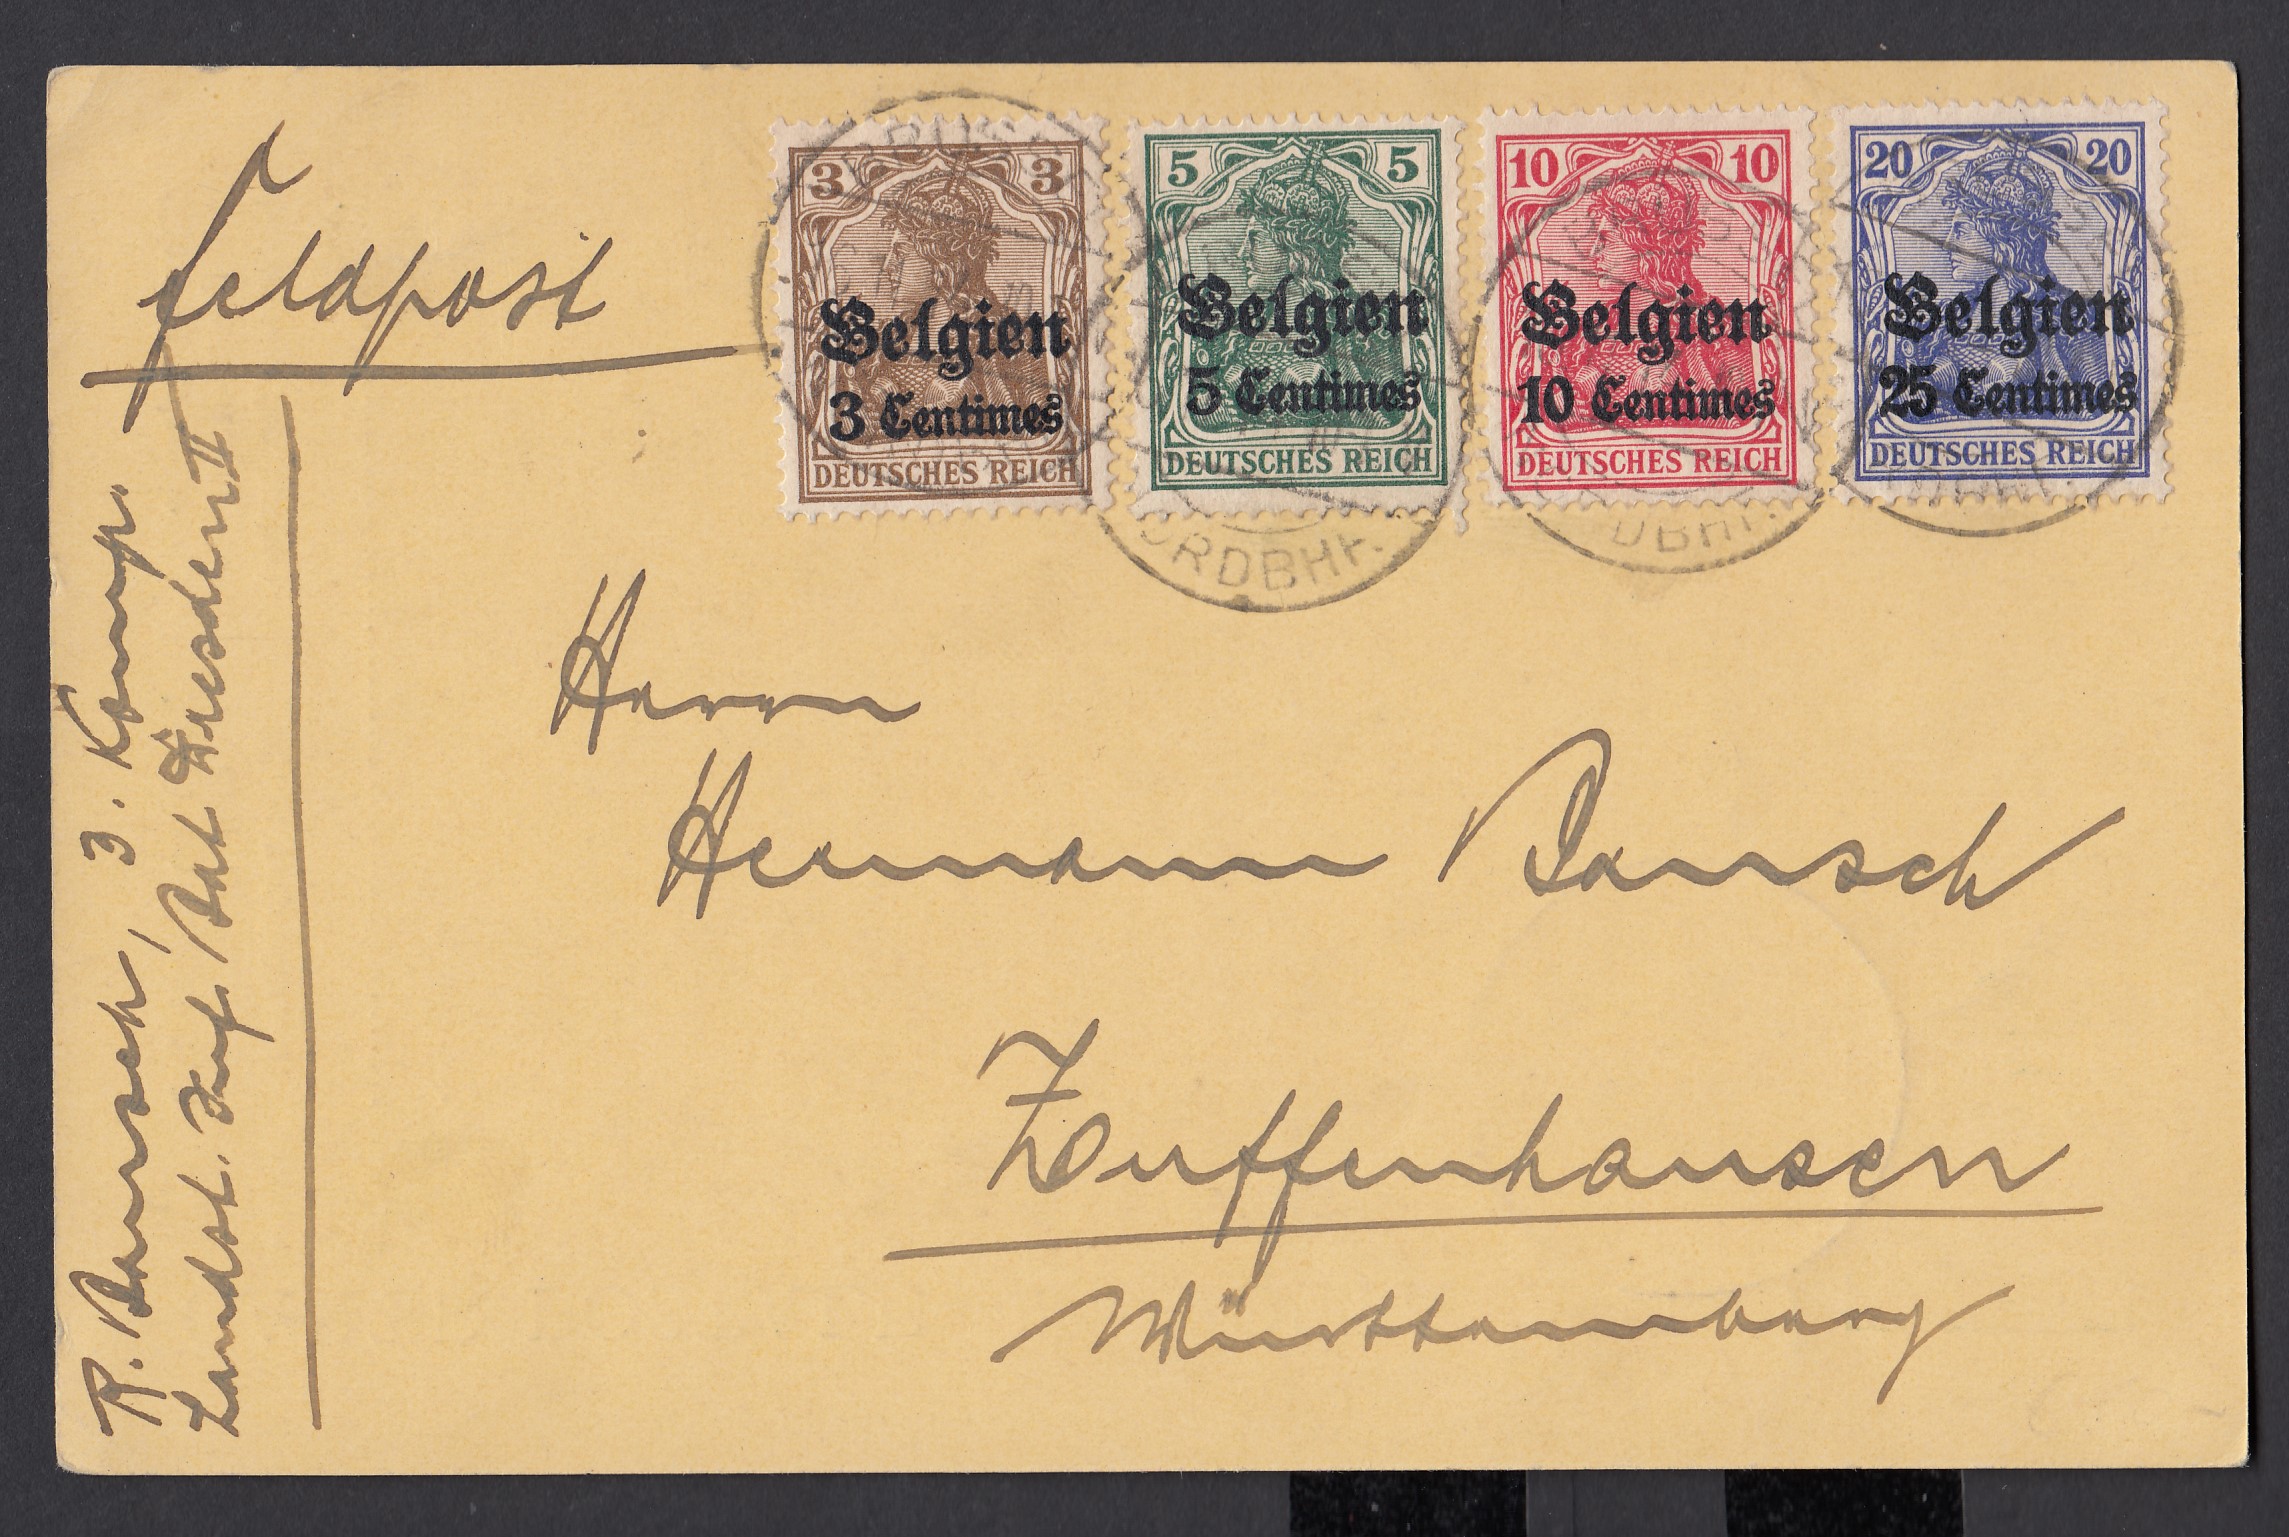 Feldpost
3 3
Belgien
3 Centimes
DEUTSCHES REICH
5 5
Belgien
5 Centimes
DEUTSCHES REICH
10 10
Belgien
10 Centimes
DEUTSCHES REICH
20 20
Belgien
25 Centimes
DEUTSCHES REICH
ORDBHF.
DBHF.
Herrn
Hermann Bausch
Zuffenhausen
Württemberg
R. Bausch, 3. Komp.
Landst. Inf. Bat Dresden II